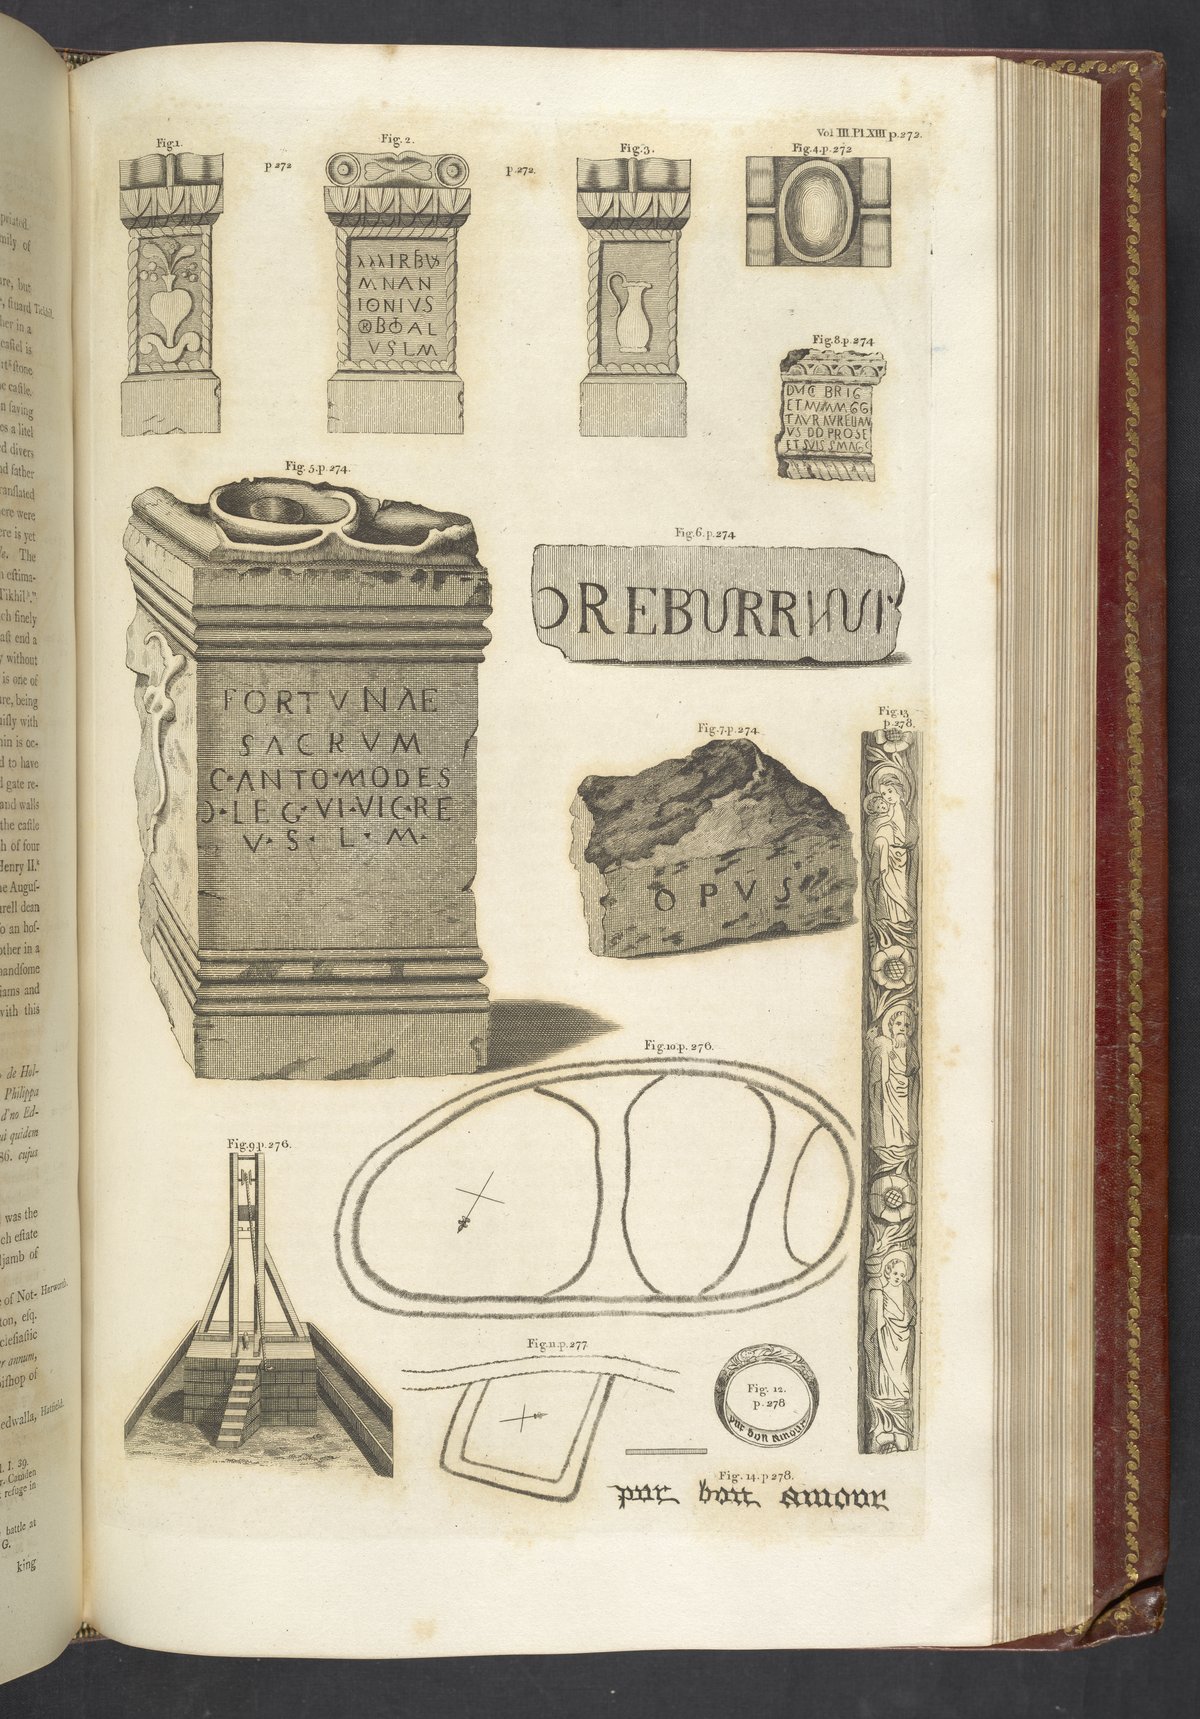 Vol III. Pl. XIII p. 272.
Fig. 1.
p 272
Fig. 2.
p. 272.
Fig. 3.
Fig. 4. p. 272
MNAN
IONIVS
VSLM
Fig. 8. p. 274
DVCI BRIG
ET NVMM GG
TAVR AVRELIAN
VS DD PROSE
ET SVIS SMAGG
Fig. 5. p. 274.
FORTVNAE
SACRVM
C·ANTO·MODES
Ɔ·LEG·VI·VIC·RE
V·S·L·M·
Fig. 6. p. 274
ƆREBURRINUI
Fig. 7. p. 274.
OPVS
Fig. 13
p. 278.
Fig. 10. p. 276.
Fig. 9. p. 276.
Fig. 11. p. 277
Fig. 12.
p. 278
pur bon amour
Fig. 14. p 278.
pur bon amour
priated.
mily of
are, but
, stuard
Tickhill.
her in a
castel is
stone
e castle.
n saying
es a litel
d divers
nd father
ranslated
ere were
ere is yet
le. The
n estima-
Tikhil."
ch finely
ast end a
y without
is one of
ure, being
nisly with
hin is oc-
d to have
d gate re-
and walls
the castle
h of four
Henry II.
he Augus-
rell dean
o an hos-
other in a
handsome
iams and
with this
de Hol-
Philippa
d'no Ed-
ui quidem
86. cujus
was the
ch estate
ljamb of
e of Not-
Harworth.
ton, esq.
clesiastic
er annum,
bishop of
edwalla,
Hatfield.
l. I. 39.
Camden
refuge in
battle at
G.
king